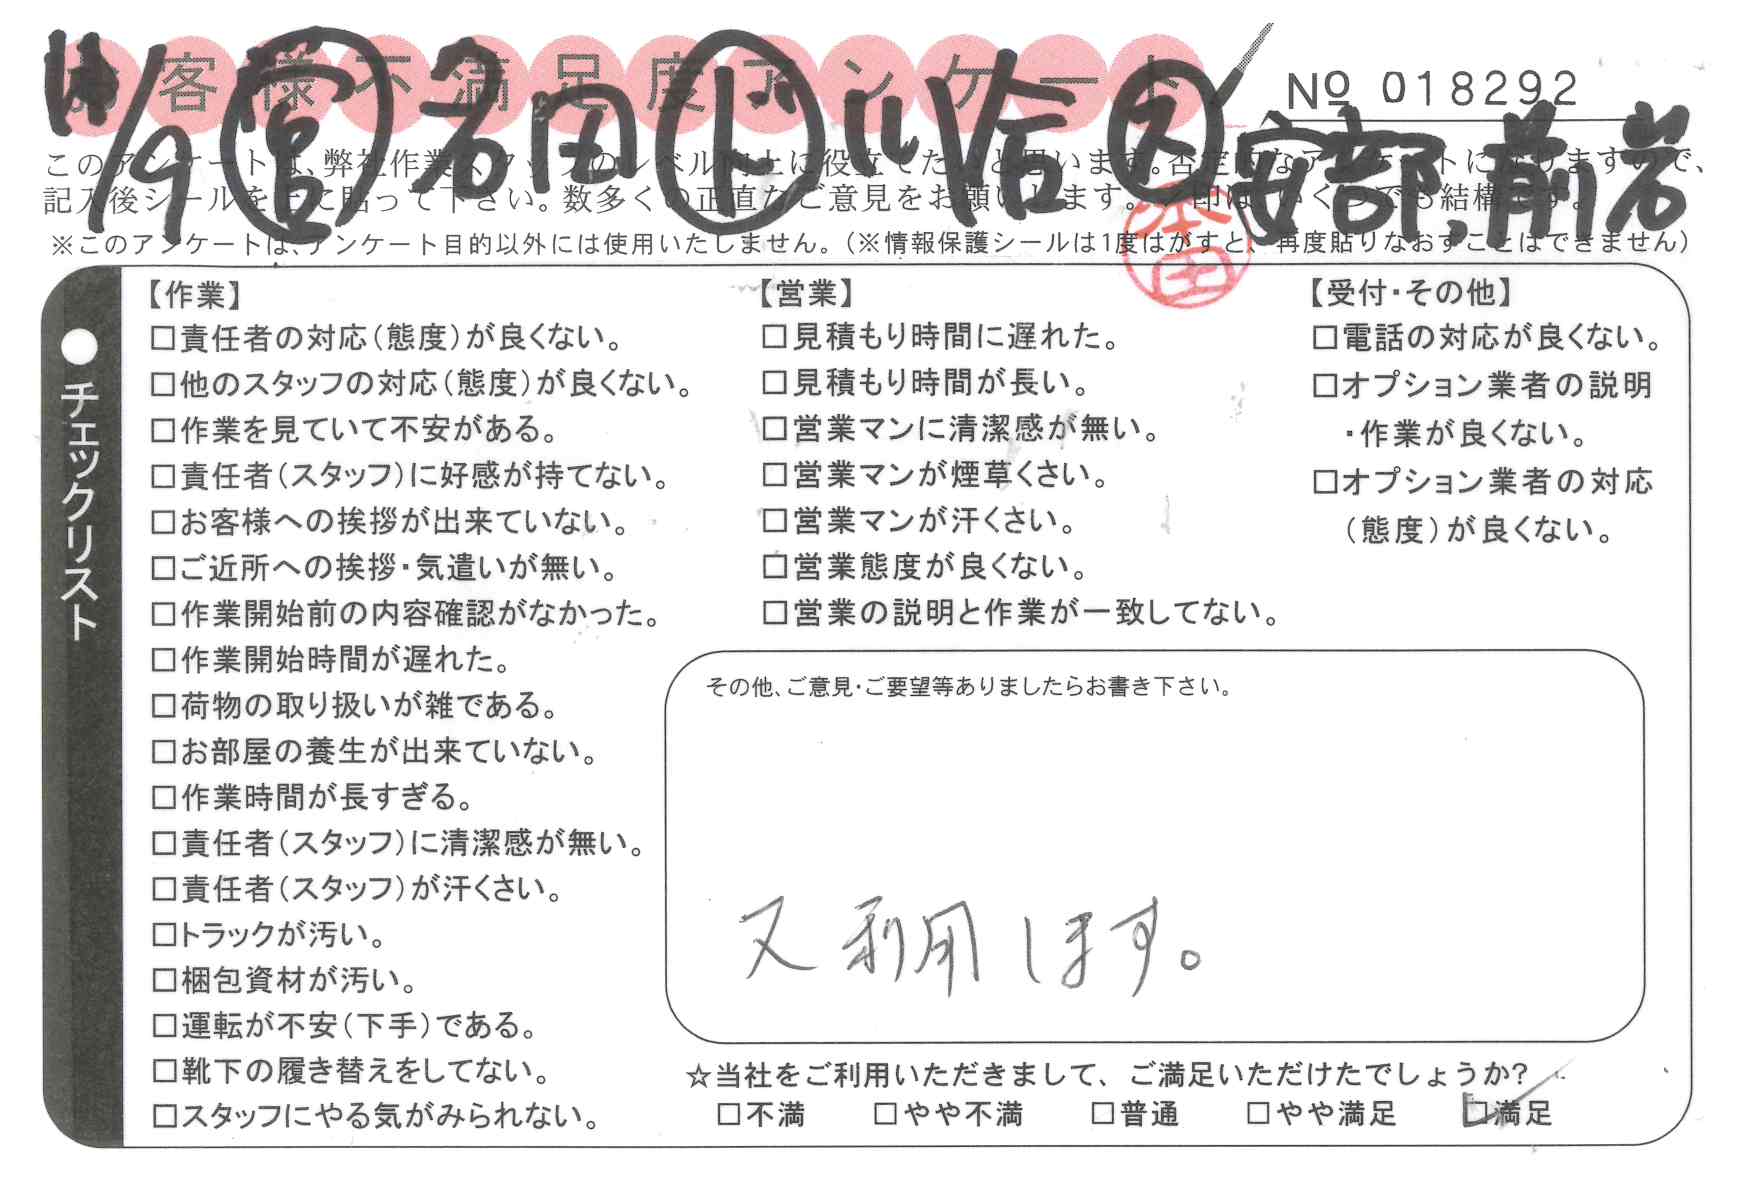 お客様不満足度アンケート
No 018292
11/9 営 名田 ト 川合 ス 安部、前岩
このアンケートは、弊社作業スタッフのレベル向上に役立てたいと思います。否定的なアンケートになりますので、
記入後シールを上に貼って下さい。数多くの正直なご意見をお願いします。✓印は、いくつでも結構です。
※このアンケートは、アンケート目的以外には使用いたしません。（※情報保護シールは1度はがすと、再度貼りなおすことはできません）
本田
●チェックリスト
【作業】
□責任者の対応（態度）が良くない。
□他のスタッフの対応（態度）が良くない。
□作業を見ていて不安がある。
□責任者（スタッフ）に好感が持てない。
□お客様への挨拶が出来ていない。
□ご近所への挨拶・気遣いが無い。
□作業開始前の内容確認がなかった。
□作業開始時間が遅れた。
□荷物の取り扱いが雑である。
□お部屋の養生が出来ていない。
□作業時間が長すぎる。
□責任者（スタッフ）に清潔感が無い。
□責任者（スタッフ）が汗くさい。
□トラックが汚い。
□梱包資材が汚い。
□運転が不安（下手）である。
□靴下の履き替えをしてない。
□スタッフにやる気がみられない。
【営業】
□見積もり時間に遅れた。
□見積もり時間が長い。
□営業マンに清潔感が無い。
□営業マンが煙草くさい。
□営業マンが汗くさい。
□営業態度が良くない。
□営業の説明と作業が一致してない。
【受付・その他】
□電話の対応が良くない。
□オプション業者の説明
・作業が良くない。
□オプション業者の対応
（態度）が良くない。
その他、ご意見・ご要望等ありましたらお書き下さい。
又利用します。
☆当社をご利用いただきまして、ご満足いただけたでしょうか?
□不満 □やや不満 □普通 □やや満足 ☑満足